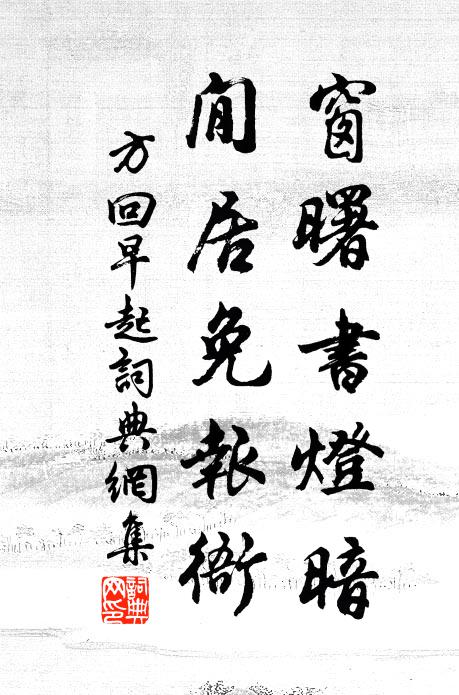 窗曙書燈暗
閒居免報衙
方回早起詞典網集
詞典网印